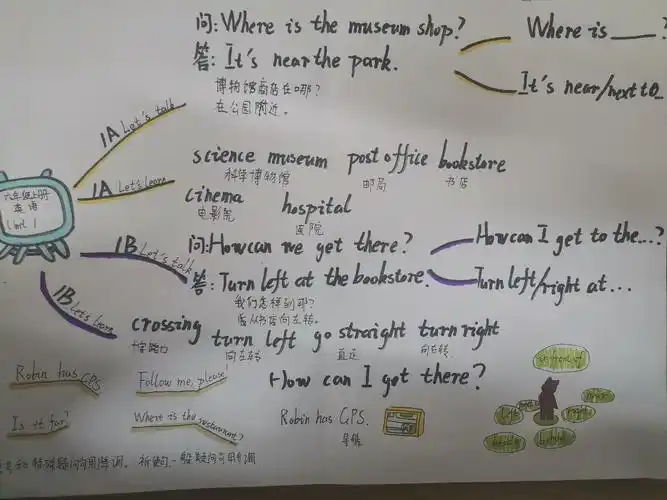 问: Where is the museum shop?
答: It's near the park.
博物馆商店在哪?
在公园附近。
Where is ____?
It's near/next to_
1A Let's talk
1A Let's learn
science museum post office bookstore
科学博物馆 邮局 书店
cinema hospital
电影院 医院
六年级上册
英语
Unit 1
1B Let's talk
问: How can we get there?
答: Turn left at the bookstore.
我们怎样到那?
左转。
How can I get to the...?
Turn left/right at...
1B Let's learn
crossing turn left go straight turn right
十字路口 向左转 直走 向右转
How can I get there?
Robin has GPS.
Follow me, please!
Is it far?
Where is the restaurant?
Robin has GPS.
in front of